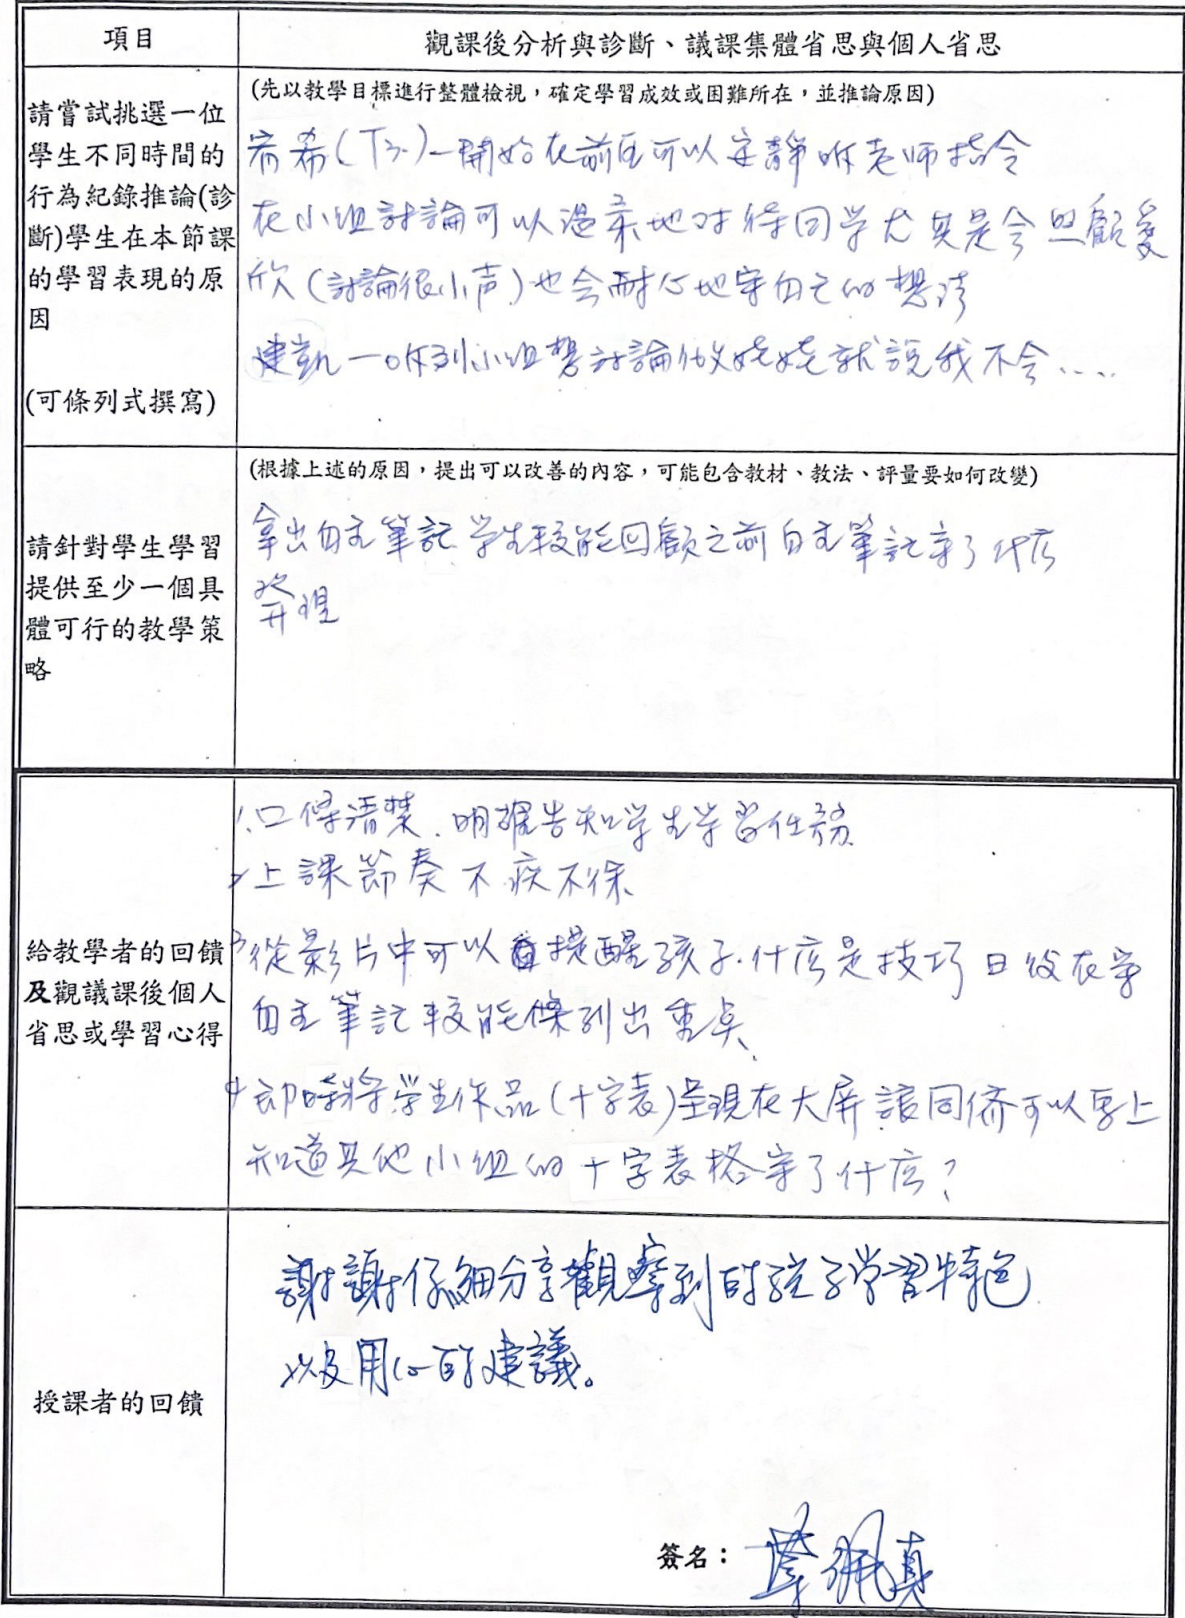 項目
觀課後分析與診斷、議課集體省思與個人省思
請嘗試挑選一位
學生不同時間的
行為紀錄推論(診
斷)學生在本節課
的學習表現的原
因
(可條列式撰寫)
(先以教學目標進行整體檢視，確定學習成效或困難所在，並推論原因)
希(T3)一開始在前面可以安靜听老师指令
在小組討論可以溫柔地对待同学尤其是会照顧愛
欣(討論很小声)也会耐心地穿自己的想法
建凱一听到小組要討論就說我不会....
請針對學生學習
提供至少一個具
體可行的教學策
略
(根據上述的原因，提出可以改善的內容，可能包含教材、教法、評量要如何改變)
拿出自主筆記学生較能回顧之前自主筆記寫了什庅
發現
給教學者的回饋
及觀議課後個人
省思或學習心得
1.口條清楚、明確告知学生学習任務
2.上課節奏不疾不徐
3從影片中可以提醒孩子.什庅是技巧日後在寫
自主筆記較能條列出重点、
4即時將学生作品(十字表)呈現在大屏讓同儕可以馬上
知道其他小組的十字表格寫了什庅?
授課者的回饋
謝謝仔細分享觀察到的孩子學習特色
以及用心的建議。
簽名：